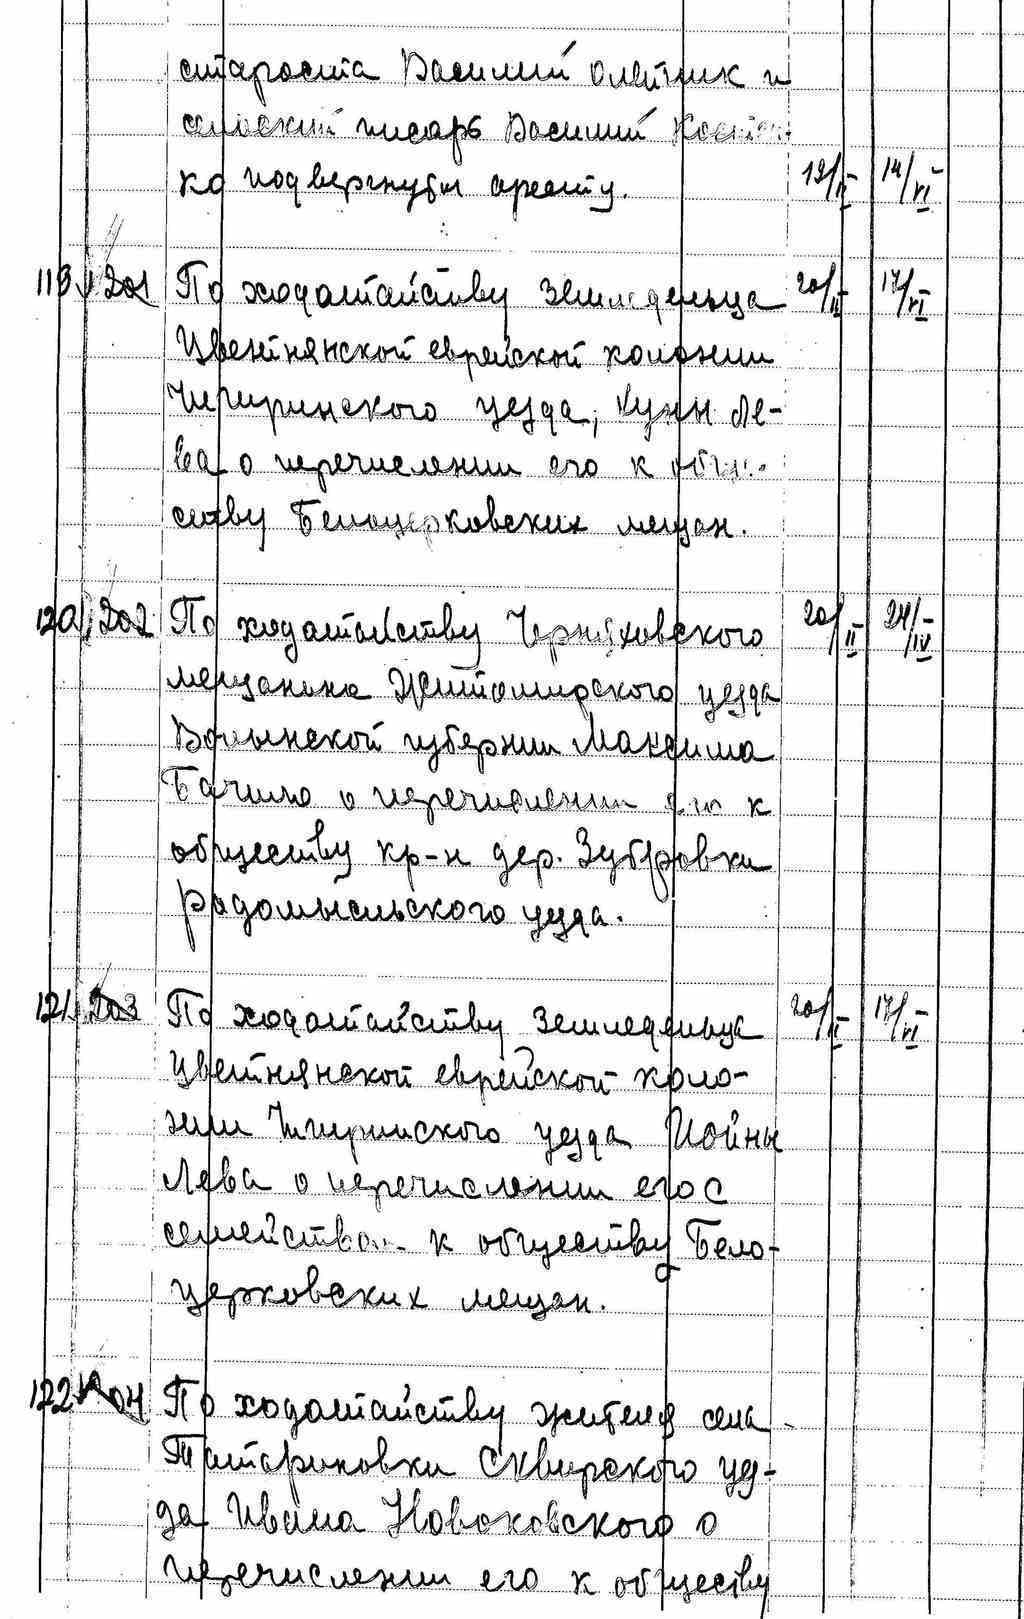 староста Василий Олейник и
сельский писарь Василий Костен-
ко подвергнуты аресту. 19/II 14/VI
119 201 По ходатайству земледельца 20/II 17/VI
Цветнянской еврейской колонии
Чигиринского уезда, Куни Ле-
ва о перечислении его к обще-
ству Белоцерковских мещан.
120 202 По ходатайству Черняховского 20/II 24/IV
мещанина Житомирского уезда
Волынской губернии Максима
Бачило о перечислении его к
обществу кр-н дер. Зубровки
Радомысльского уезда.
121 203 По ходатайству земледельца 20/II 17/VI
Цветнянской еврейской коло-
нии Чигиринского уезда Йойны
Лева о перечислении его с
семейством к обществу Бело-
церковских мещан.
122 204 По ходатайству жителя села
Татариновки Сквирского уез-
да Ивана Новаковского о
перечислении его к обществу